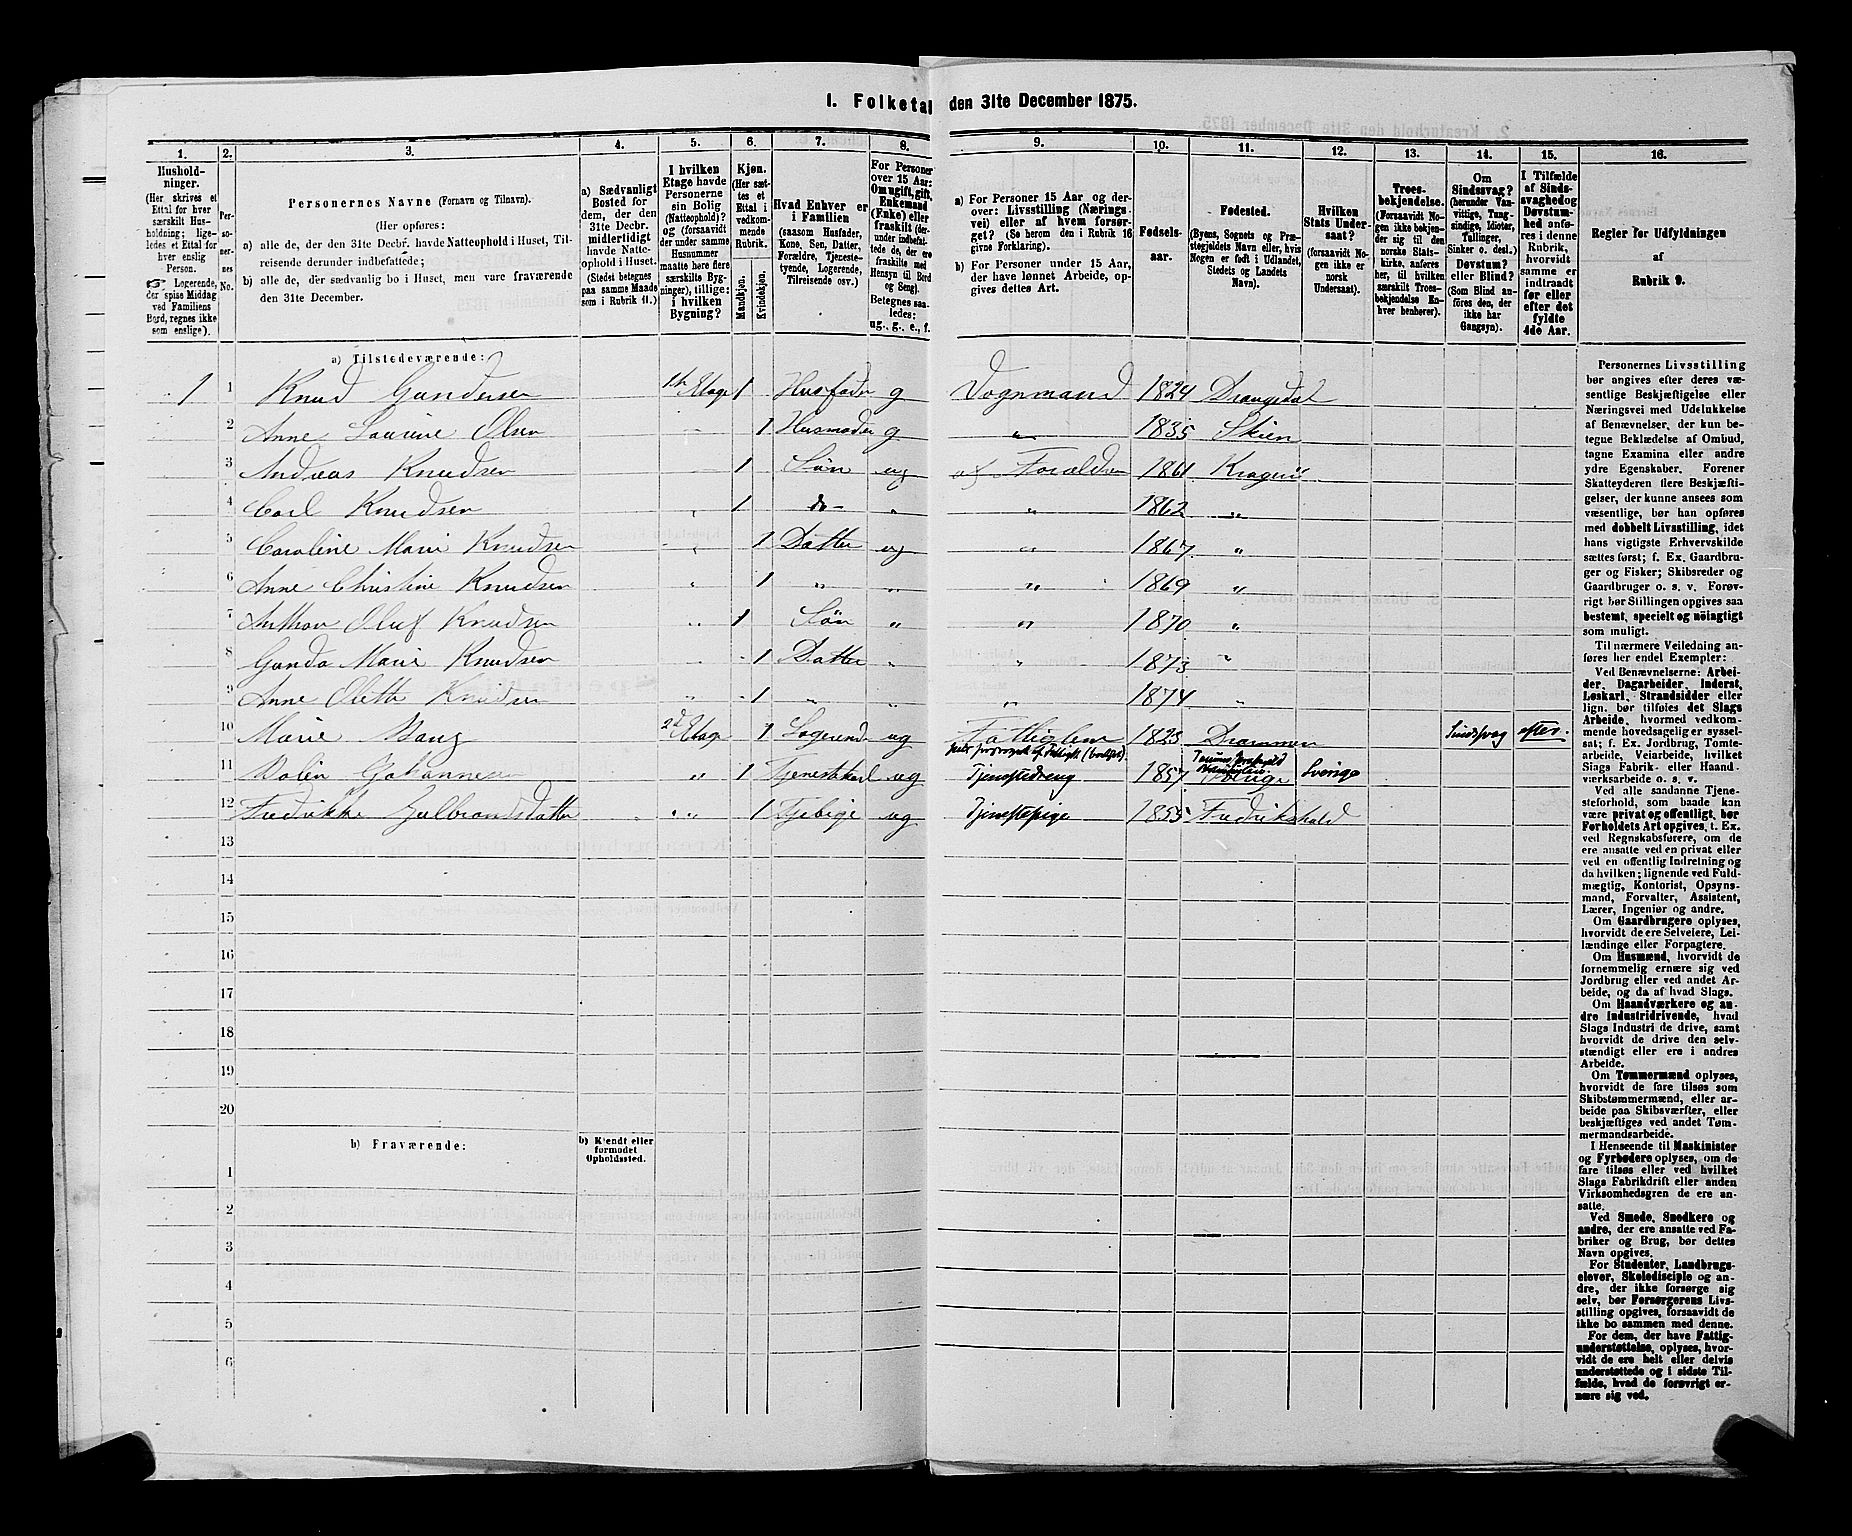 1. Folketal den 31te December 1875.
1.
Hushold-
ninger.
(Her skrives et
Ettal for hver
særskilt Hus-
holdning; lige-
ledes et Ettal for
hver enslig
Person.
☞ Logerende,
der spise Middag
ved Familiens
Bord, regnes ikke
som enslige).
2.
Per-
so-
ner-
nes
No.
3.
Personernes Navne (Fornavn og Tilnavn).
(Her opføres:
a) alle de, der den 31te Decbr. havde Natteophold i Huset, Til-
reisende derunder indbefattede;
b) alle de, der sædvanlig bo i Huset, men vare fraværende
den 31te December.
4.
a) Sædvanligt
Bosted for
dem, der den
31te Decbr.
midlertidigt
havde Natte-
ophold i Huset.
(Stedet betegnes
paa samme Maade
som i Rubrik 11.)
5.
I hvilken
Etage havde
Personerne
sin Bolig
(Natteophold)?
og (forsaavidt
der under samme
Husnummer
maatte høre flere
særskilte Byg-
ninger), tillige:
i hvilken
Bygning?
6.
Kjøn.
(Her sæt-
tes et
Ettal i
vedkom-
mende
Rubrik.
Mandkjøn.
Kvindekjøn.
7.
Hvad Enhver er
i Familien
(saasom Husfader,
Kone, Søn, Datter,
Forældre, Tjeneste-
tyende, Logerende,
Tilreisende osv.)
8.
For Personer
over 15 Aar:
Om ugift, gift,
Enkemand
(Enke) eller
fraskilt (der-
under indbefat-
tede de, der ere
fraskilte med
Hensyn til Bord
og Seng).
Betegnes saa-
ledes:
ug., g., e., f.
9.
a) For Personer 15 Aar og der-
over: Livsstilling (Nærings-
vei) eller af hvem forsør-
get? (Se herom den i Rubrik 16
givne Forklaring).
b) For Personer under 15 Aar,
der have lønnet Arbeide, op-
gives dettes Art.
10.
Fødsels-
aar.
11.
Fødested.
(Byens, Sognets og Præ-
stegjeldets Navn eller, hvis
Nogen er født i Udlandet,
Stedets og Landets
Navn).
12.
Hvilken
Stats Under-
saat?
(forsaavidt No-
gen ikke er
norsk
Undersaat).
13.
Troes-
bekjendelse.
(Forsaavidt No-
gen ikke bekjen-
der sig til den
norske Stats-
kirke, anføres
her, til hvilken
særskilt Troes-
bekjendelse En-
hver henhører).
14.
Om
Sindssvag?
(herunder Van-
vittige, Tung-
sindige, Idioter,
Tullinger,
Sinker o. desl.)
Døvstum?
eller Blind?
(Som Blind an-
føres den, der
ikke har
Gangsyn).
15.
I Tilfælde
af Sinds-
svaghed og
Døvstum-
hed anfø-
res i denne
Rubrik,
hvorvidt
samme er
indtraadt
før eller
efter det
fyldte
4de Aar.
16.
Regler for Udfyldningen
af
Rubrik 9.
a) Tilstedeværende:
1 1 Knud Gundersen 1ste Etage 1 Husfader g Vognmand 1824 Drangedal
2 Anne Laurine Olsen „ 1 Husmoder g „ 1835 Skien
3 Andreas Knudsen 1 Søn ug af Forældre 1861 Kragerø
4 Carl Knudsen „ 1 do „ „ 1862 „
5 Caroline Marie Knudsen „ 1 Datter ug „ 1867 „
6 Anne Christine Knudsen „ 1 „ „ „ 1869 „
7 Anthon Oluf Knudsen „ 1 Søn „ „ 1870 „
8 Gunda Marie Knudsen „ 1 Datter „ „ 1873 „
9 Anne Olette Knudsen „ 1 „ „ „ 1874 „
10 Marie Bang 2d Etage 1 Logerende ug Fattiglem 1823 Drammen Sindsvag efter.
11 Johannesen „ 1 Tjenestekarl ug Tjenestedreng 1857 Sverige
12 Fredrikke Gulbrandsdatter „ „ 1 Tjpige ug Tjenestepige 1855 Fredrikshald
13
14
15
16
17
18
19
20
b) Fraværende:
b) Kjendt eller
formodet
Opholdssted.
1
2
3
4
5
6
Personernes Livsstilling
bør angives efter deres væ-
sentlige Beskjæftigelse eller
Næringsvei med Udelukkelse
af Benævnelser, der kun be-
tegne Beklædelse af Ombud,
tagne Examina eller andre
ydre Egenskaber. Forener
Skatteyderen flere Beskjæfti-
gelser, der kunne ansees som
væsentlige, bør han opføres
med dobbelt Livsstilling, idet
hans vigtigste Erhvervskilde
sættes først; f. Ex. Gaardbru-
ger og Fisker; Skibsreder og
Gaardbruger o. s. v. Forøv-
rigt bør Stillingen opgives saa
bestemt, specielt og nöiagtigt
som muligt.
Til nærmere Veiledning an-
føres her endel Exempler:
Ved Benævnelserne: Arbei-
der, Dagarbeider, Inderst,
Løskarl, Strandsidder eller
lign. bør tilføies det Slags
Arbeide, hvormed vedkom-
mende hovedsagelig er syssel-
sat; f. Ex. Jordbrug, Tomte-
arbeide, Veiarbeide, hvilket
Slags Fabrik- eller Haand-
værksarbeide o. s. v.
Ved alle saadanne Tjene-
steforhold, som baade kan
være privat og offentligt, bør
Forholdets Art opgives, t. Ex.
ved Regnskabsførere, om de
ere ansatte ved en privat eller
ved en offentlig Indretning og
da hvilken; lignende ved Fuld-
mægtig, Kontorist, Opsyns-
mand, Forvalter, Assistent,
Lærer, Ingeniør og andre.
Om Gaardbrugere oplyses,
hvorvidt de ere Selveiere, Lei-
lændinge eller Forpagtere.
Om Husmænd, hvorvidt de
fornemmelig ernære sig ved
Jordbrug eller ved andet Ar-
beide, og da af hvad Slags.
Om Haandværkere og an-
dre Industridrivende, hvad
Slags Industri de drive, samt
hvorvidt de drive den selv-
stændigt eller ere i andres
Arbeide.
Om Tømmermænd oplyses,
hvorvidt de fare tilsøs som
Skibstømmermænd, eller ar-
beide paa Skibsværfter, eller
beskjæftiges ved andet Tøm-
mermandsarbeide.
I Henseende til Maskinister
og Fyrbødere oplyses, om de
fare tilsøs eller ved hvilket
Slags Fabrikdrift eller anden
Virksomhedsgren de ere an-
satte.
Ved Smede, Snedkere og
andre, der ere ansatte ved Fa-
briker og Brug, bør dettes
Navn opgives.
For Studenter, Landbrugs-
elever, Skoledisciple og an-
dre, der ikke forsørge sig
selv, bør Forsørgerens Livs-
stilling opgives, forsaavidt de
ikke bo sammen med denne.
For dem, der have Fattig-
understøttelse, oplyses, hvor-
vidt de ere helt eller delvis
understøttede og i sidste Til-
fælde, hvad de forøvrigt er-
nære sig ved.